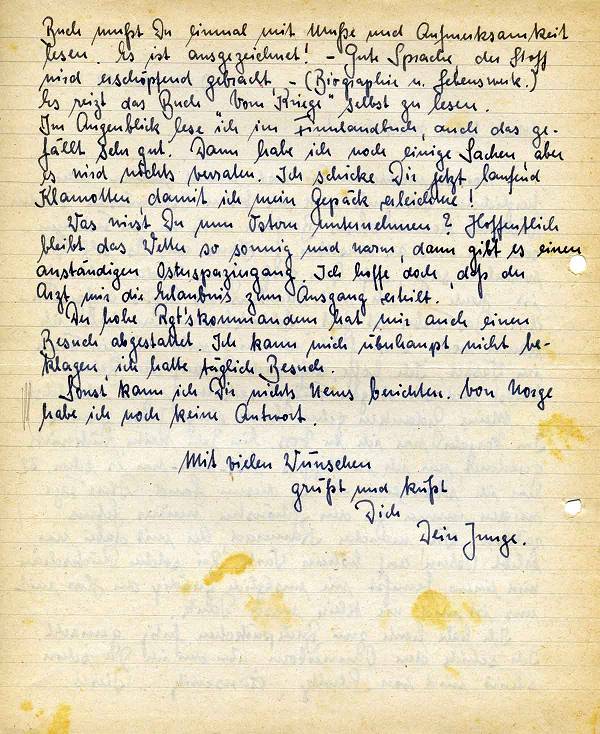 Buch mußt Du einmal mit Muße und Aufmerksamkeit
lesen. Es ist ausgezeichnet! – Gute Sprache, der Stoff
wird erschöpfend gebracht. – (Biographie u. Lebenswerk.)
Es reizt das Buch "Vom Kriege" selbst zu lesen.
Im Augenblick lese ich im Finnlandbuch, auch das ge-
fällt sehr gut. Dann habe ich noch einige Sachen, aber
es wird nichts verraten. Ich schicke Dir jetzt laufend
Klamotten, damit ich mein Gepäck erleichtere!
Was wirst Du nun Ostern unternehmen? Hoffentlich
bleibt das Wetter so sonnig und warm, dann gibt es einen
anständigen Osterspaziergang. Ich hoffe doch, daß der
Arzt mir die Erlaubnis zum Ausgang erteilt.
Der hohe Rgt'skommandeur hat mir auch einen
Besuch abgestattet. Ich kann mich überhaupt nicht be-
klagen, ich hatte täglich Besuch.
Sonst kann ich Dir nichts Neues berichten. Von Norge
habe ich noch keine Antwort.
Mit vielen Wünschen
grüßt und küßt
Dich
Dein Junge.